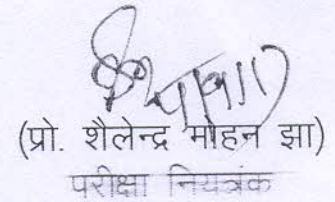 (प्रो. शैलेन्द्र मोहन झा)
परीक्षा नियंत्रक